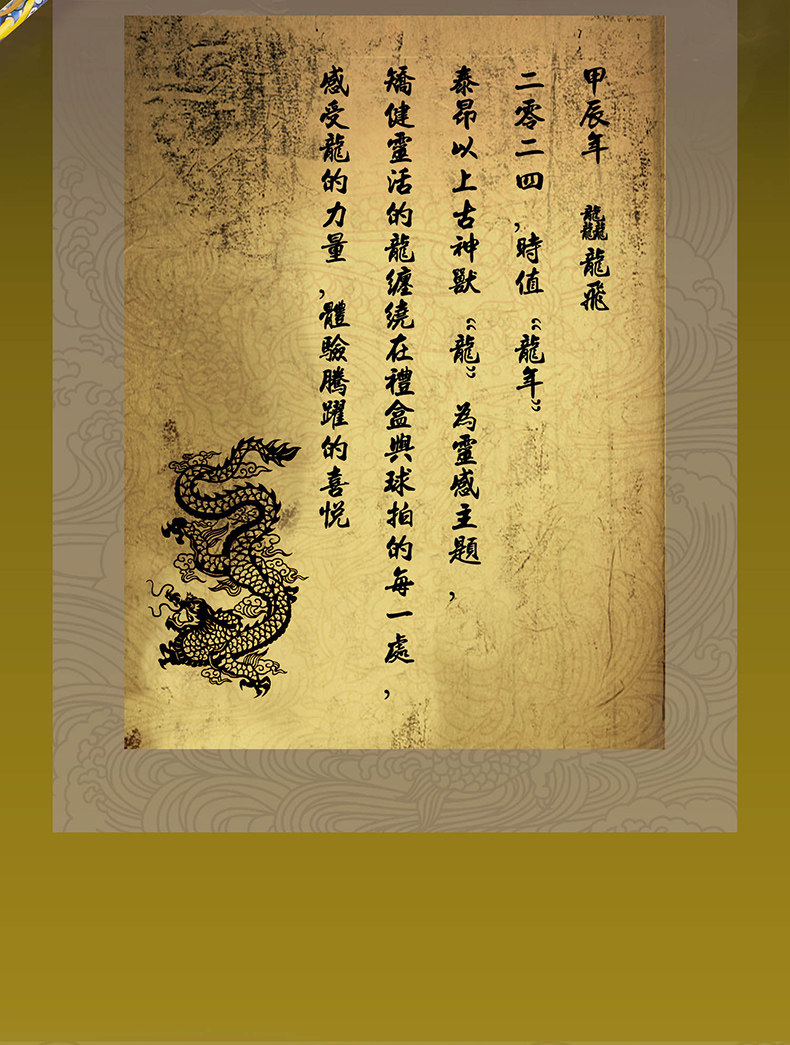 甲辰年 龘龍飛
二零二四，時值“龍年”
泰昂以上古神獸“龍”為靈感主題，
矯健靈活的龍纏繞在禮盒與球拍的每一處，
感受龍的力量，體驗騰躍的喜悅